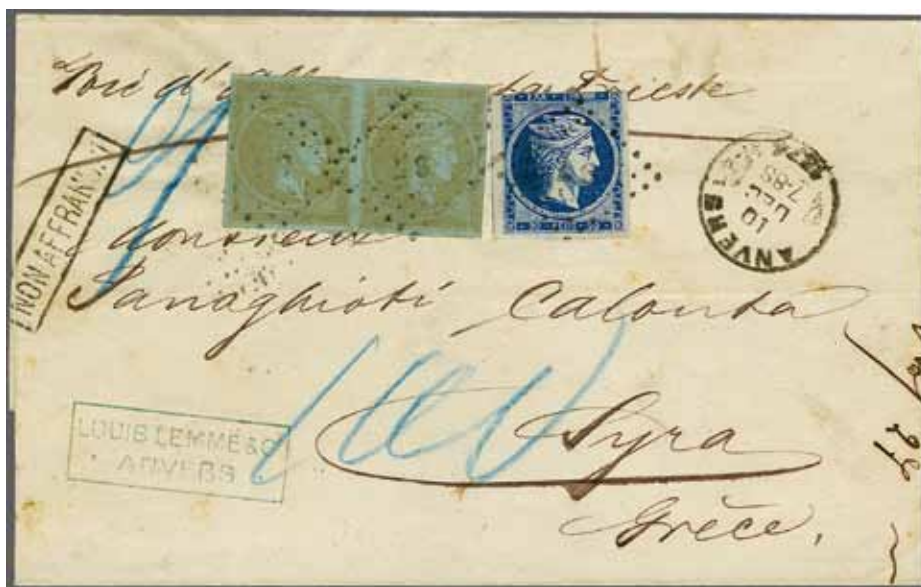 Voie d' Trieste
NON AFFRANCHI
ANVERS
10
DEC
7-8S
Monsieur
Panaghioti Calouta
100
LOUIS LEMMÉ & Cº
ANVERS
Syra
Grèce.